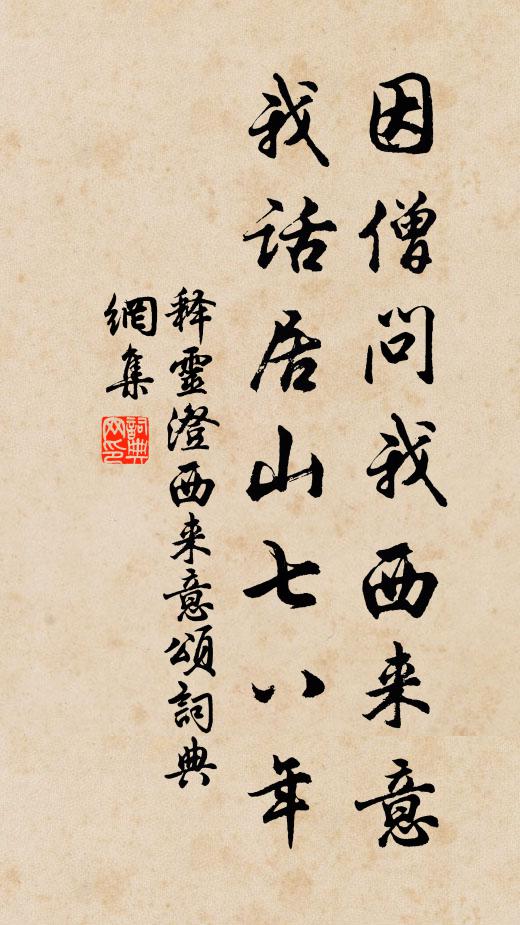 因僧问我西来意
我话居山七八年
释靈澄西来意頌詞典
網集
詞典
网印